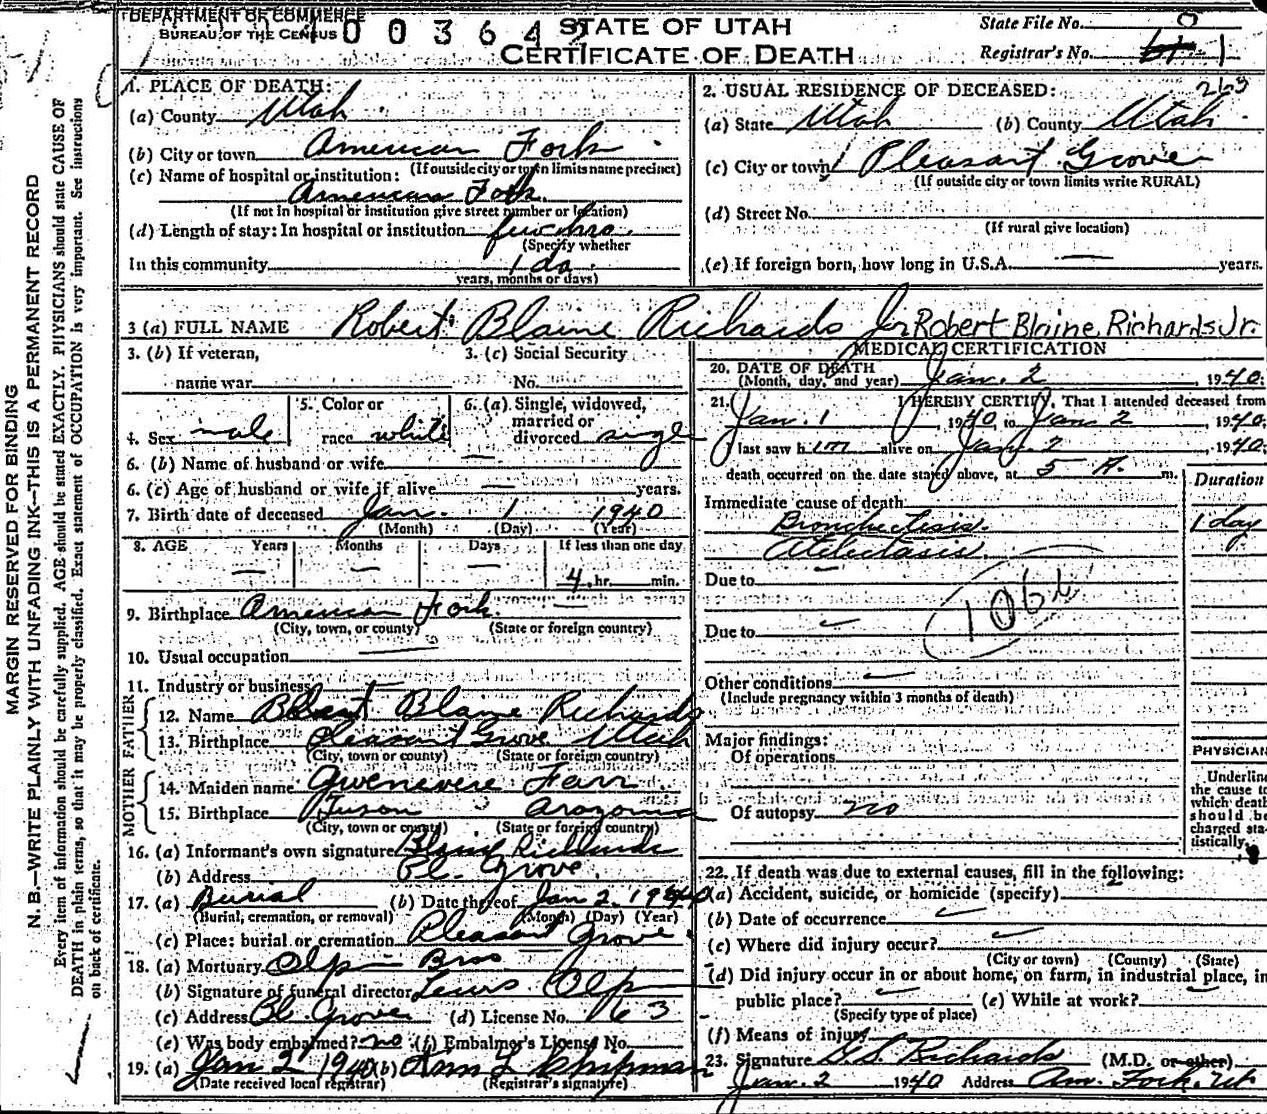 DEPARTMENT OF COMMERCE
BUREAU OF THE CENSUS
100364
STATE OF UTAH
CERTIFICATE OF DEATH
State File No.
Registrar's No. 1
263
MARGIN RESERVED FOR BINDING
N. B.—WRITE PLAINLY WITH UNFADING INK—THIS IS A PERMANENT RECORD
Every item of information should be carefully supplied. AGE should be stated EXACTLY. PHYSICIANS should state CAUSE OF
DEATH in plain terms, so that it may be properly classified. Exact statement of OCCUPATION is very important. See instructions
on back of certificate.
1. PLACE OF DEATH:
(a) County Utah
(b) City or town American Fork
(If outside city or town limits name precinct)
(c) Name of hospital or institution:
American Fork
(If not in hospital or institution give street number or location)
(d) Length of stay: In hospital or institution few hrs.
(Specify whether
In this community 1 da.
years, months or days)
2. USUAL RESIDENCE OF DECEASED:
(a) State Utah (b) County Utah
(c) City or town Pleasant Grove
(If outside city or town limits write RURAL)
(d) Street No.
(If rural give location)
(e) If foreign born, how long in U.S.A. — years.
3 (a) FULL NAME Robert Blaine Richards Jr Robert Blaine Richards Jr.
3. (b) If veteran, 3. (c) Social Security
name war No.
4. Sex male 5. Color or race white 6. (a) Single, widowed, married or divorced single
6. (b) Name of husband or wife —
6. (c) Age of husband or wife if alive — years.
7. Birth date of deceased Jan. 1 1940
(Month) (Day) (Year)
8. AGE Years Months Days If less than one day
— — — 4 hr. min.
9. Birthplace American Fork. —
(City, town, or county) (State or foreign country)
10. Usual occupation —
11. Industry or business —
FATHER
12. Name Robert Blaine Richards
13. Birthplace Pleasant Grove Utah
(City, town or county) (State or foreign country)
MOTHER
14. Maiden name Gwenevere Farr
15. Birthplace Tuson Arozona
(City, town or county) (State or foreign country)
16. (a) Informant's own signature Blaine Richards
(b) Address Pl. Grove.
17. (a) Burial (b) Date thereof Jan 2. 1940
(Burial, cremation, or removal) (Month) (Day) (Year)
(c) Place: burial or cremation Pleasant Grove
18. (a) Mortuary Olpin Bros
(b) Signature of funeral director Lewis Olpin
(c) Address Pl. Grove (d) License No. 163
(e) Was body embalmed? no (f) Embalmer's License No.
19. (a) Jan 2 1940 (b) Ann L Chipman
(Date received local registrar) (Registrar's signature)
MEDICAL CERTIFICATION
20. DATE OF DEATH
(Month, day, and year) Jan. 2, 1940.
21. I HEREBY CERTIFY, That I attended deceased from
Jan. 1, 1940, to Jan 2, 1940;
I last saw him alive on Jan. 2, 1940;
death occurred on the date stated above, at 5 A. m.
Duration
Immediate cause of death
Bronchectesis. 1 day
Atelectasis.
Due to
Due to
106
Other conditions
(Include pregnancy within 3 months of death)
Major findings:
Of operations
Of autopsy no
PHYSICIAN
Underline
the cause to
which death
should be
charged sta-
tistically.
22. If death was due to external causes, fill in the following:
(a) Accident, suicide, or homicide (specify)
(b) Date of occurrence
(c) Where did injury occur?
(City or town) (County) (State)
(d) Did injury occur in or about home, on farm, in industrial place, in
public place? (e) While at work?
(Specify type of place)
(f) Means of injury
23. Signature G. S. Richards (M.D. or other)
Jan. 2 1940 Address Am. Fork. Ut